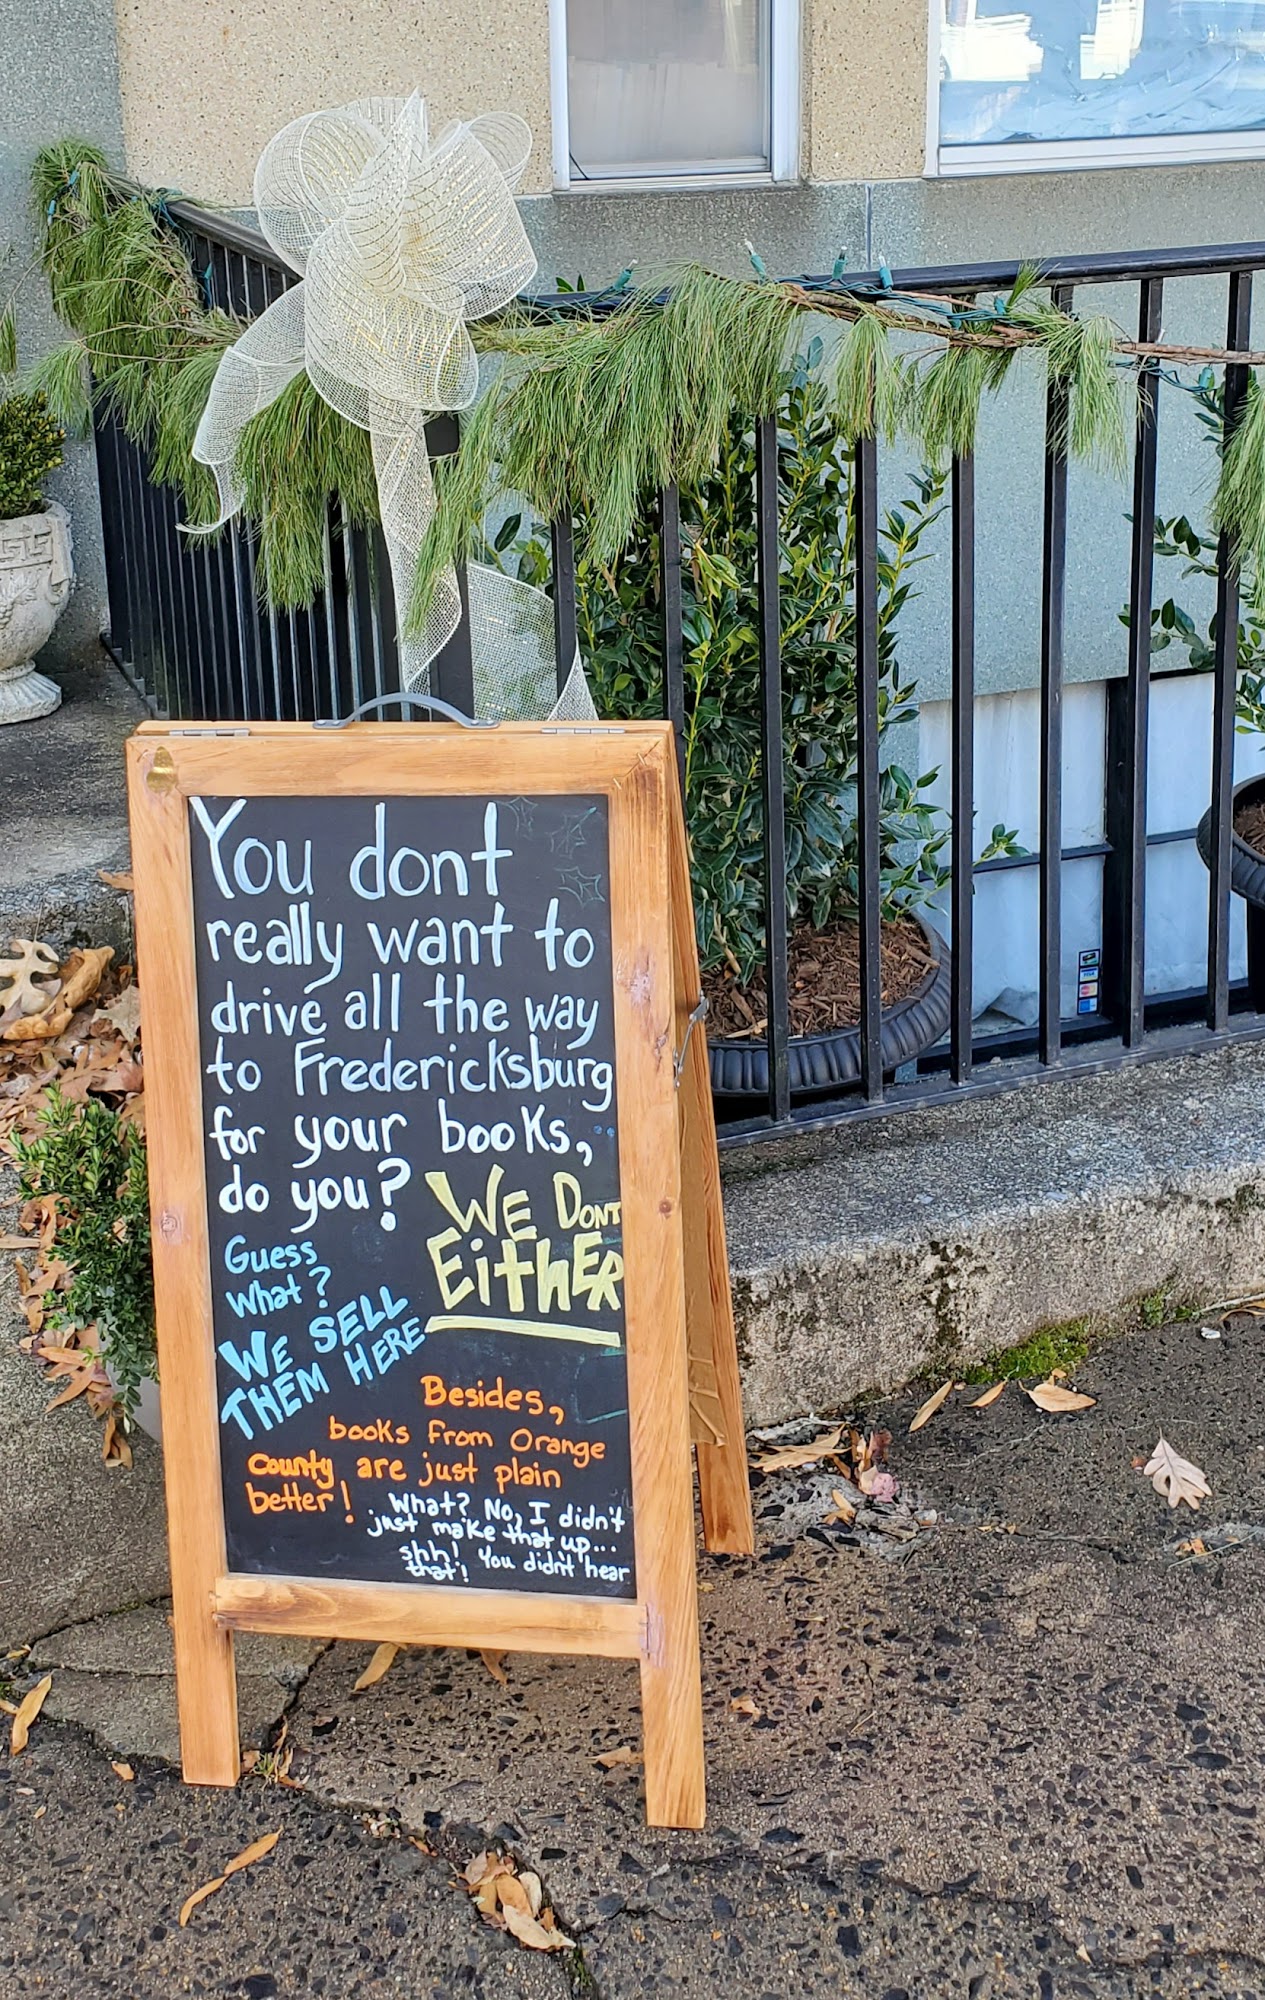 You dont
really want to
drive all the way
to Fredericksburg
for your books,
do you?
WE DONT
EithER
Guess
What?
WE SELL
THEM HERE
Besides,
books from Orange
county are just plain
better!
What? No, I didn't
just make that up...
shh! You didn't hear
that!